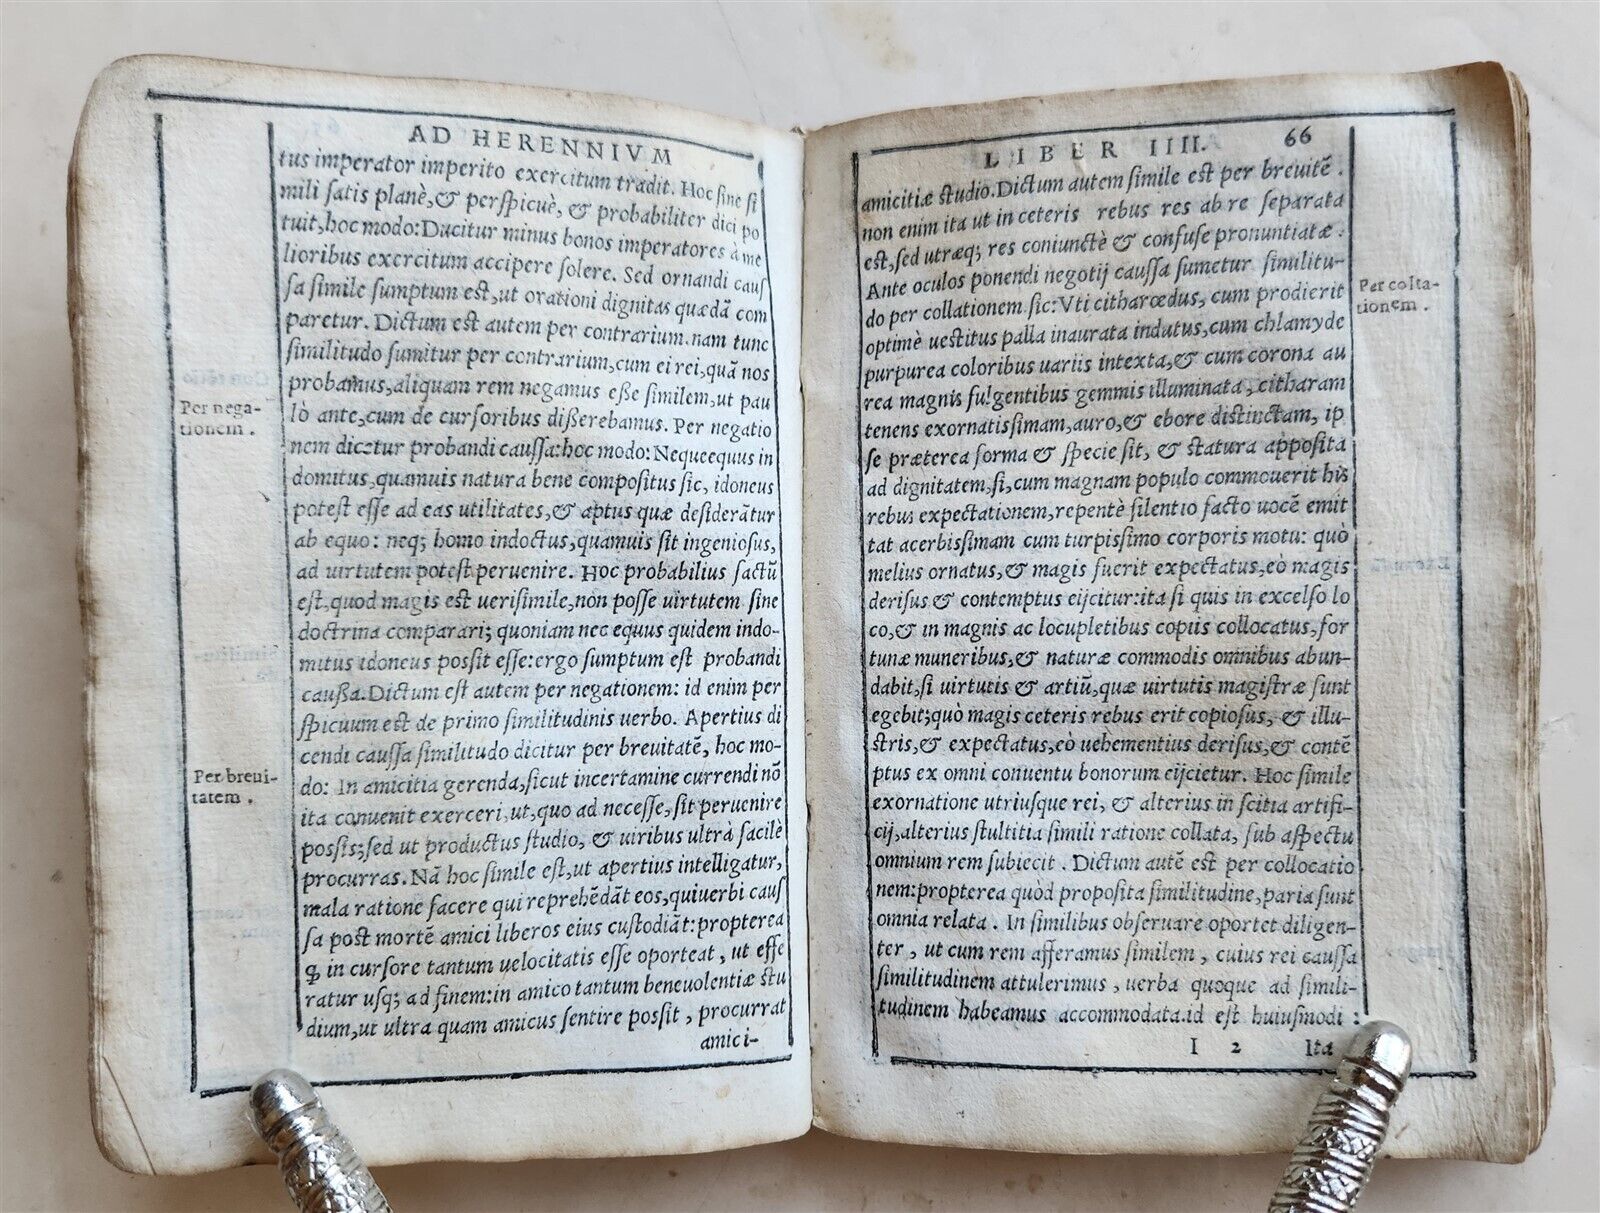 AD HERENNIVM
tus imperator imperito exercitum tradit. Hoc sine si
mili satis planè, & perspicuè, & probabiliter dici po
tuit, hoc modo: Ducitur minus bonos imperatores à me
lioribus exercitum accipere solere. Sed ornandi cauſ
ſa simile ſumptum est, ut orationi dignitas quædã com
paretur. Dictum est autem per contrarium. nam tunc
similitudo ſumitur per contrarium, cum ei rei, quã nos
probamus, aliquam rem negamus eſſe ſimilem, ut pau
lò ante, cum de curſoribus diſſerebamus. Per negatio
nem dicetur probandi cauſſa: hoc modo: Neque equus in
domitus, quamuis natura bene compositus sic, idoneus
potest eſſe ad eas utilitates, & aptus quæ desiderãtur
ab equo: neq; homo indoctus, quamuis sit ingeniosus,
ad uirtutem potest peruenire. Hoc probabilius factũ
est, quod magis est uerisimile, non poſſe uirtutem sine
doctrina comparari; quoniam nec equus quidem indo-
mitus idoneus possit eſſe: ergo ſumptum est probandi
cauſſa. Dictum est autem per negationem: id enim per
ſpicuum est de primo similitudinis uerbo. Apertius di
cendi cauſſa ſimilitudo dicitur per breuitatẽ, hoc mo-
do: In amicitia gerenda, sicut in certamine currendi nõ
ita conuenit exerceri, ut, quo ad necesse, sit peruenire
poſſis; sed ut productus studio, & uiribus ultrà facilè
procurras. Nã hoc simile est, ut apertius intelligatur,
mala ratione facere qui reprehẽdãt eos, qui uerbi cauſ
ſa post mortẽ amici liberos eius custodiãt: propterea
ꝙ in curſore tantum uelocitatis eſſe oporteat, ut effe
ratur uſq; ad finem: in amico tantum beneuolentiæ stu
dium, ut ultra quam amicus sentire possit, procurrat
amici-
Per nega-
tionem.
Per breui-
tatem.
LIBER IIII. 66
amicitiæ studio. Dictum autem simile est per breuitẽ.
non enim ita ut in ceteris rebus res ab re separata
est, sed utræq; res coniunctè & confuse pronuntiatæ.
Ante oculos ponendi negotij cauſſa sumetur similitu-
do per collationem sic: Vti citharœdus, cum prodierit
optimè uestitus palla inaurata indutus, cum chlamyde
purpurea coloribus uariis intexta, & cum corona au
rea magnis fulgentibus gemmis illuminata, citharam
tenens exornatissimam, auro, & ebore distinctam, ip
se præterea forma & specie sit, & statura apposita
ad dignitatem, si, cum magnam populo commouerit his
rebus expectationem, repentè silentio facto uocẽ emit
tat acerbissimam cum turpissimo corporis motu: quò
melius ornatus, & magis fuerit expectatus, eò magis
derisus & contemptus eijcitur: ita si quis in excelso lo
co, & in magnis ac locupletibus copiis collocatus, for
tunæ muneribus, & naturæ commodis omnibus abun-
dabit, si uirtutis & artiũ, quæ uirtutis magistræ sunt
egebit; quò magis ceteris rebus erit copiosus, & illu-
stris, & expectatus, eò uehementius derisus, & contẽ
ptus ex omni conuentu bonorum eijcietur. Hoc simile
exornatione utriusque rei, & alterius in scitia artifi-
cij, alterius stultitia simili ratione collata, sub aspectu
omnium rem subiecit. Dictum autẽ est per collocatio
nem: propterea quòd proposita similitudine, paria sunt
omnia relata. In similibus observare oportet diligen-
ter, ut cum rem afferamus similem, cuius rei cauſſa
similitudinem attulerimus, uerba quoque ad simili-
tudinem habeamus accommodata. id est huiusmodi:
I 2 Ita
Per colla-
tionem.